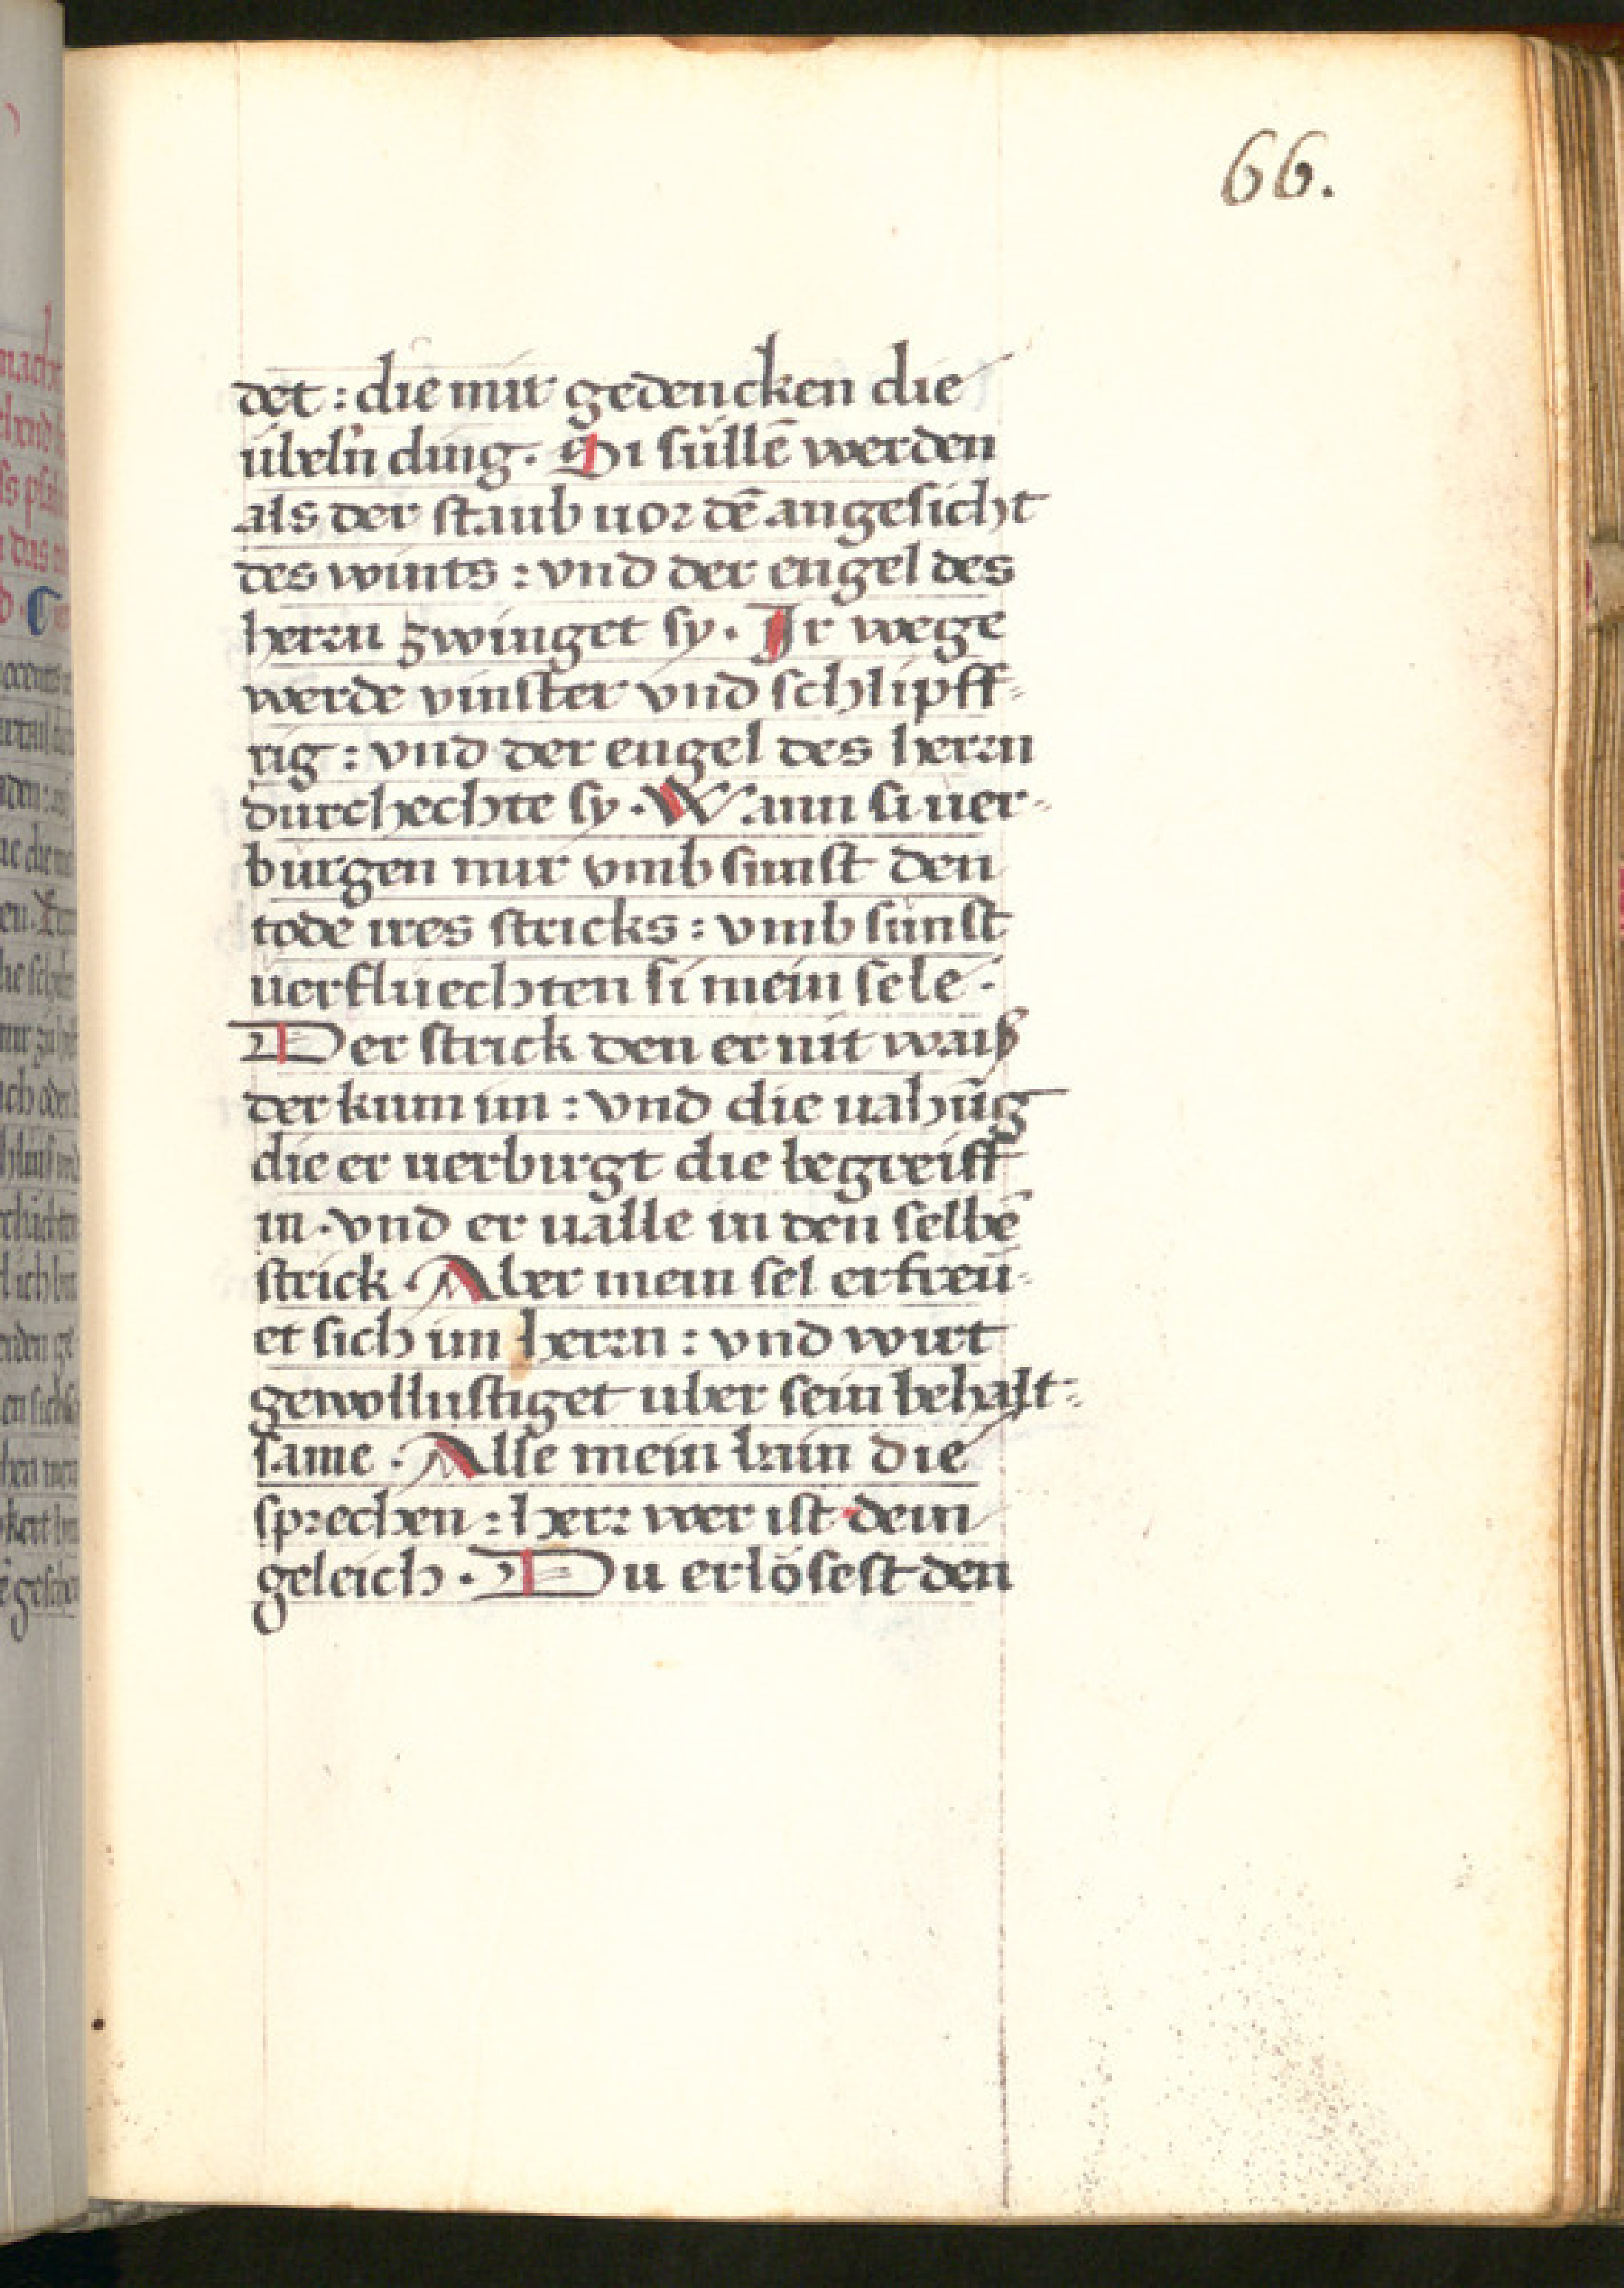 66.
det : die mir gedencken die
übeln̄ ding. Si süllē werden
als der staub uor dē angesicht
des wints : vnd der engel des
herrn zwinget sy. Ir wege
werde vinster vnd schlipff-
rig : vnd der engel des herrn
durchechte sy. Wann si uer-
burgen mir vmb sunst den
tode ires stricks : vmb sunst
uerfluechten si mein sele.
Der strick den er nit waiß
der kum im : vnd die uahūg
die er uerbirgt die begreiff
in. vnd er ualle in den selbē
strick. Aber mein sel erfreü-
et sich im herrn : vnd wirt
gewollustiget uber sein behalt-
same. Alle mein bain die
sprechen : herr wer ist dein
geleich. Du erlösest den